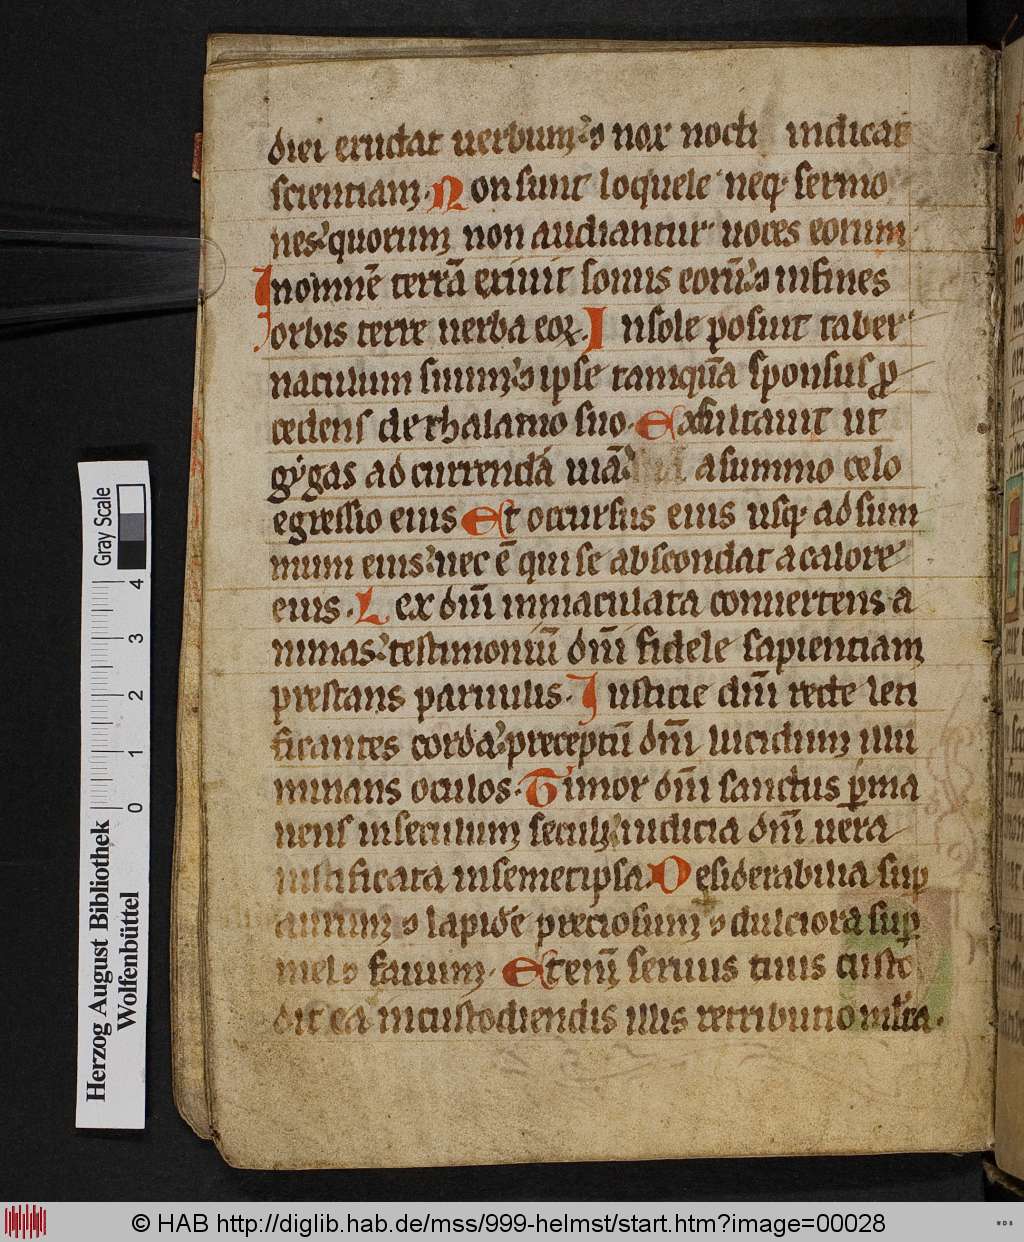 diei eructat uerbum ⁊ nox nocti indicat
scientiam. Non sunt loquele neq; sermo
nes quorum non audiantur uoces eorum
In omnē terrā exiuit sonus eorū ⁊ in fines
orbis terre uerba eoꝝ. In sole posuit taber
naculum suum ⁊ ipse tamquā sponsus ꝓ
cedens de thalamo suo. Exsultauit ut
gygas ad currendā uiā a summo celo
egressio eius Et occursus eius usq; ad sum
mum eius nec ē qui se abscondat a calore
eius. Lex dn̄i inmaculata conuertens a
nimas testimoniū dn̄i fidele sapientiam
prestans paruulis. Iusticie dn̄i recte leti
ficantes corda preceptū dn̄i lucidum illu
minans oculos. Timor dn̄i sanctus ꝑma
nens in seculum seculi iudicia dn̄i uera
iustificata in semetipsa. Desiderabilia suꝑ
aurum ⁊ lapidē preciosum ⁊ dulciora suꝑ
mel ⁊ fauum. Etenī seruus tuus custo
dit ea in custodiendis illis retributio multa.
Herzog August Bibliothek
Wolfenbüttel
0 1 2 3 4
Gray Scale
© HAB http://diglib.hab.de/mss/999-helmst/start.htm?image=00028